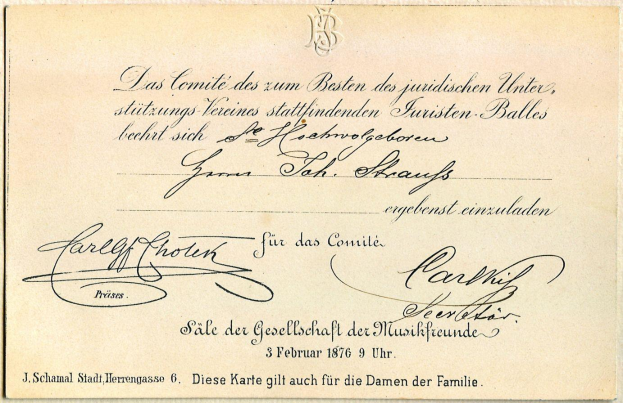 Das Comité des zum Besten des juridischen Unter-
stützungs-Vereines stattfindenden Juristen-Balles
beehrt sich Se Hochwolgeboren
Herrn Joh. Strauss
ergebenst einzuladen
für das Comité
Carl Gf Chotek
Präses.
Secretär.
Säle der Gesellschaft der Musikfreunde
3 Februar 1876 9 Uhr.
J. Schamal Stadt, Herrengasse 6. Diese Karte gilt auch für die Damen der Familie.